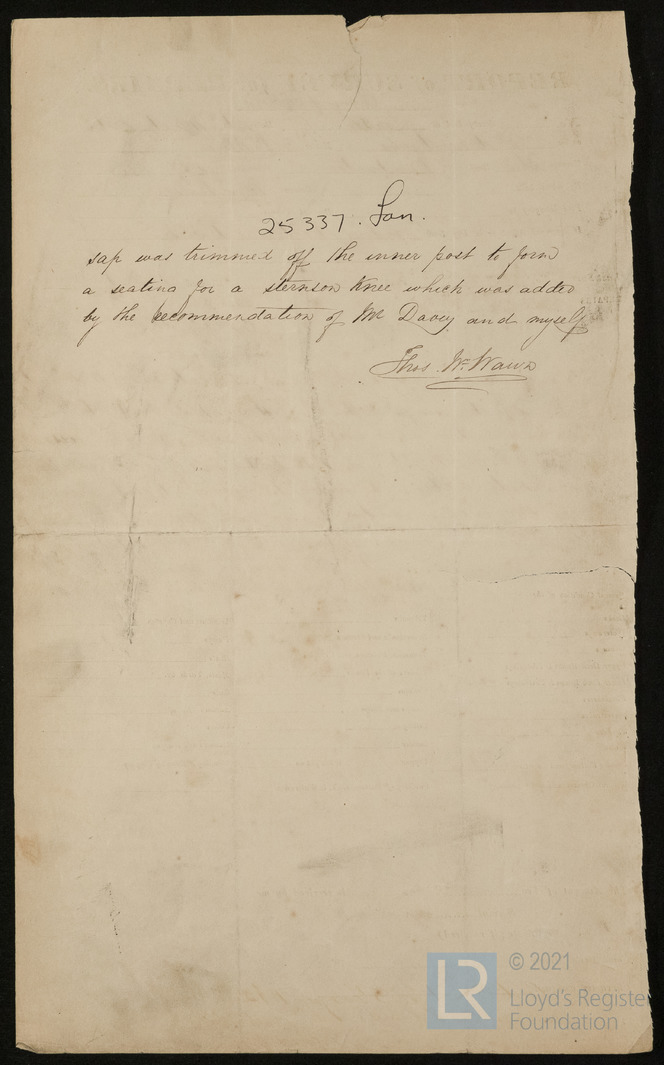 25337. Lon.
sap was trimmed off the inner post to form
a seating for a sternson Knee which was added
by the recommendation of Mr Davy and myself
Thos. Wm Wawn
LR
© 2021
Lloyd's Register
Foundation